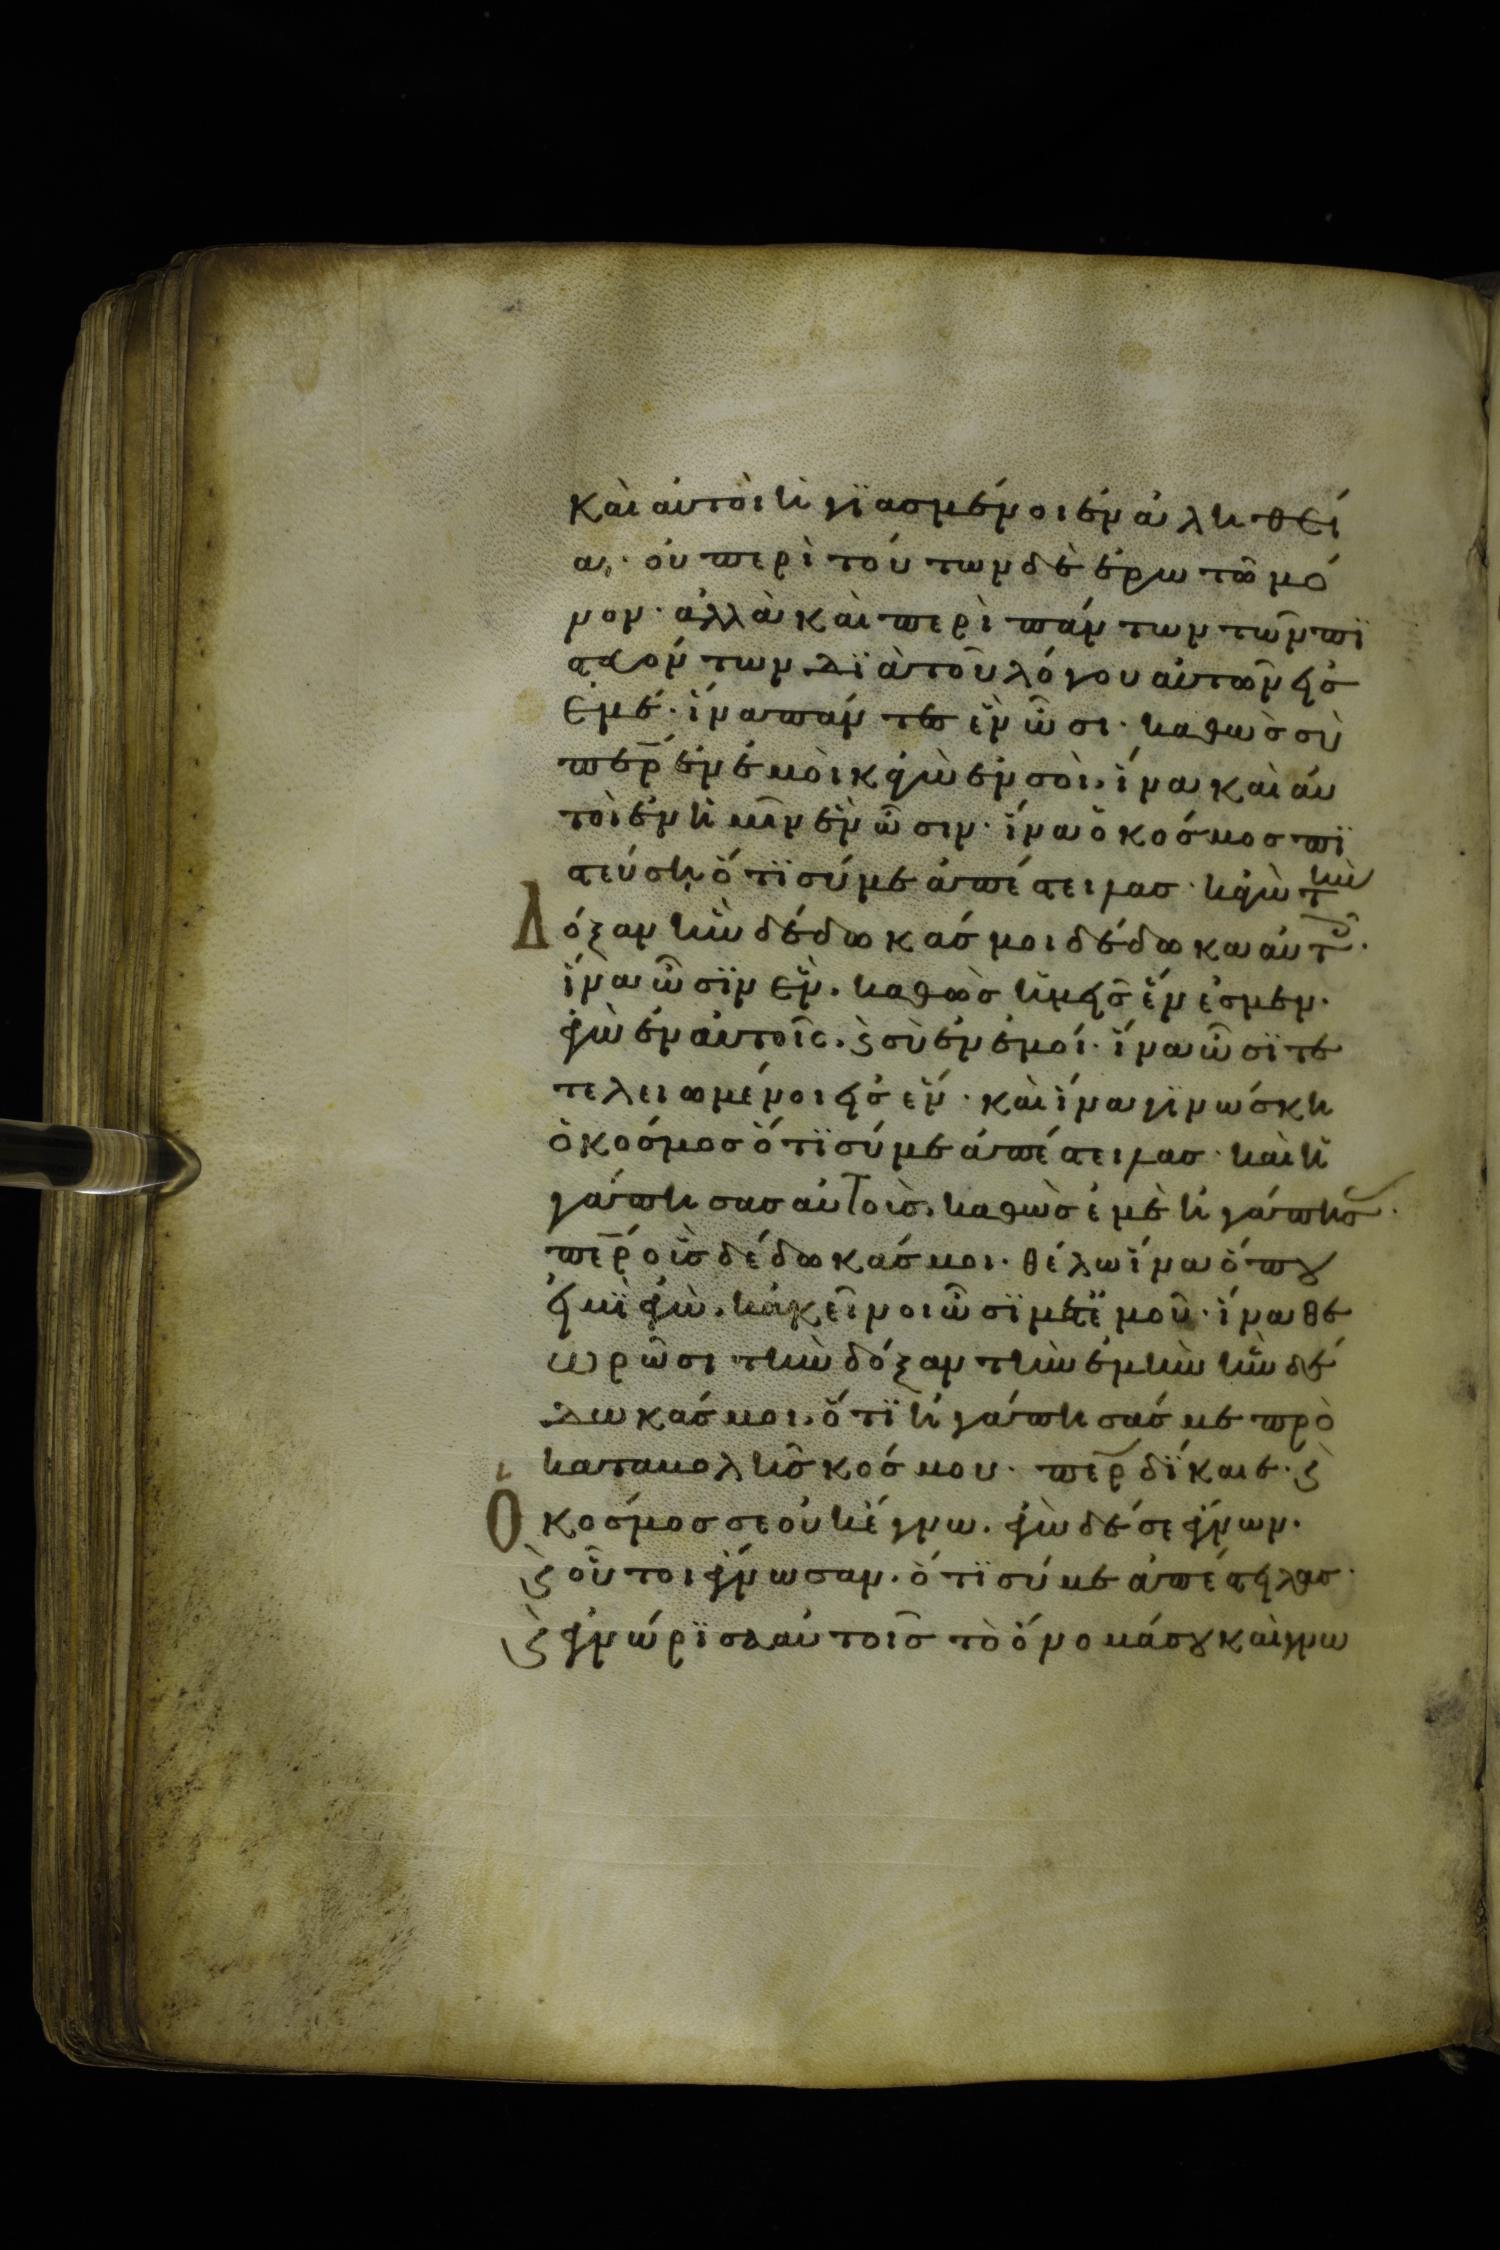 καὶ αὐτοὶ ἡγϊασμένοι ἐν ἀληθεί
α· οὐ περὶ τούτων δὲ ἐρωτῶ μό
νον· ἀλλὰ καὶ περὶ πάντων τῶν πϊ
στευόντων δϊὰ τοῦ λόγου αὐτῶν εἰσ
ἐμέ· ἵνα πάντεσ ἓν ὦσι· καθὼσ σὺ
περ ἐν ἐμοὶ κἀγὼ ἐν σοὶ, ἵνα καὶ αὐ
τοὶ ἐν ἡμῖν ἓν ὦσιν· ἵνα ὁ κόσμοσ πϊ
στεύσῃ ὅτϊ σύ με ἀπέστειλασ· κἀγὼ τὴν
Δόξαν ἣν δέδωκάσ μοι δέδωκα αὐτ·
ἵνα ὦσϊν ἓν. καθὼσ ἡμεῖσ ἕν ἐσμεν.
ἐγὼ ἐν αὐτοῖς. ϗ σὺ ἐν ἐμοί· ἵνα ὦσϊ τε
τελειωμένοι εἰσ ἓν· καὶ ἵνα γϊνώσκη
ὁ κόσμοσ ὅτϊ σύ με ἀπέστειλασ· καὶ ἠ
γάπησασ αὐτοὺσ. καθὼσ ἐμὲ ἠγάπησ·
περ οὓσ δέδωκάσ μοι· θέλω ἵνα ὅπȣ
εἰμῒ ἐγὼ. κἀκεῖνοι ὦσϊ μετ ἐμοῦ· ἵνα θε
ωρῶσι τὴν δόξαν τὴν ἐμὴν ἣν δέ
δωκάσ μοι, ὅτϊ ἠγάπησάσ με πρὸ
καταβολῆσ κόσμου· περ δίκαιε· ϗ
Ὁ κόσμοσ σε οὐκ ἔγνω. ἐγὼ δέ σε ἔγνων.
ϗ οὗτοι ἔγνωσαν. ὅτϊ σύ με ἀπέστειλασ·
ϗ ἐγνώρϊσα αὐτοῖσ τὸ ὄνομά σȣ καὶ γνω